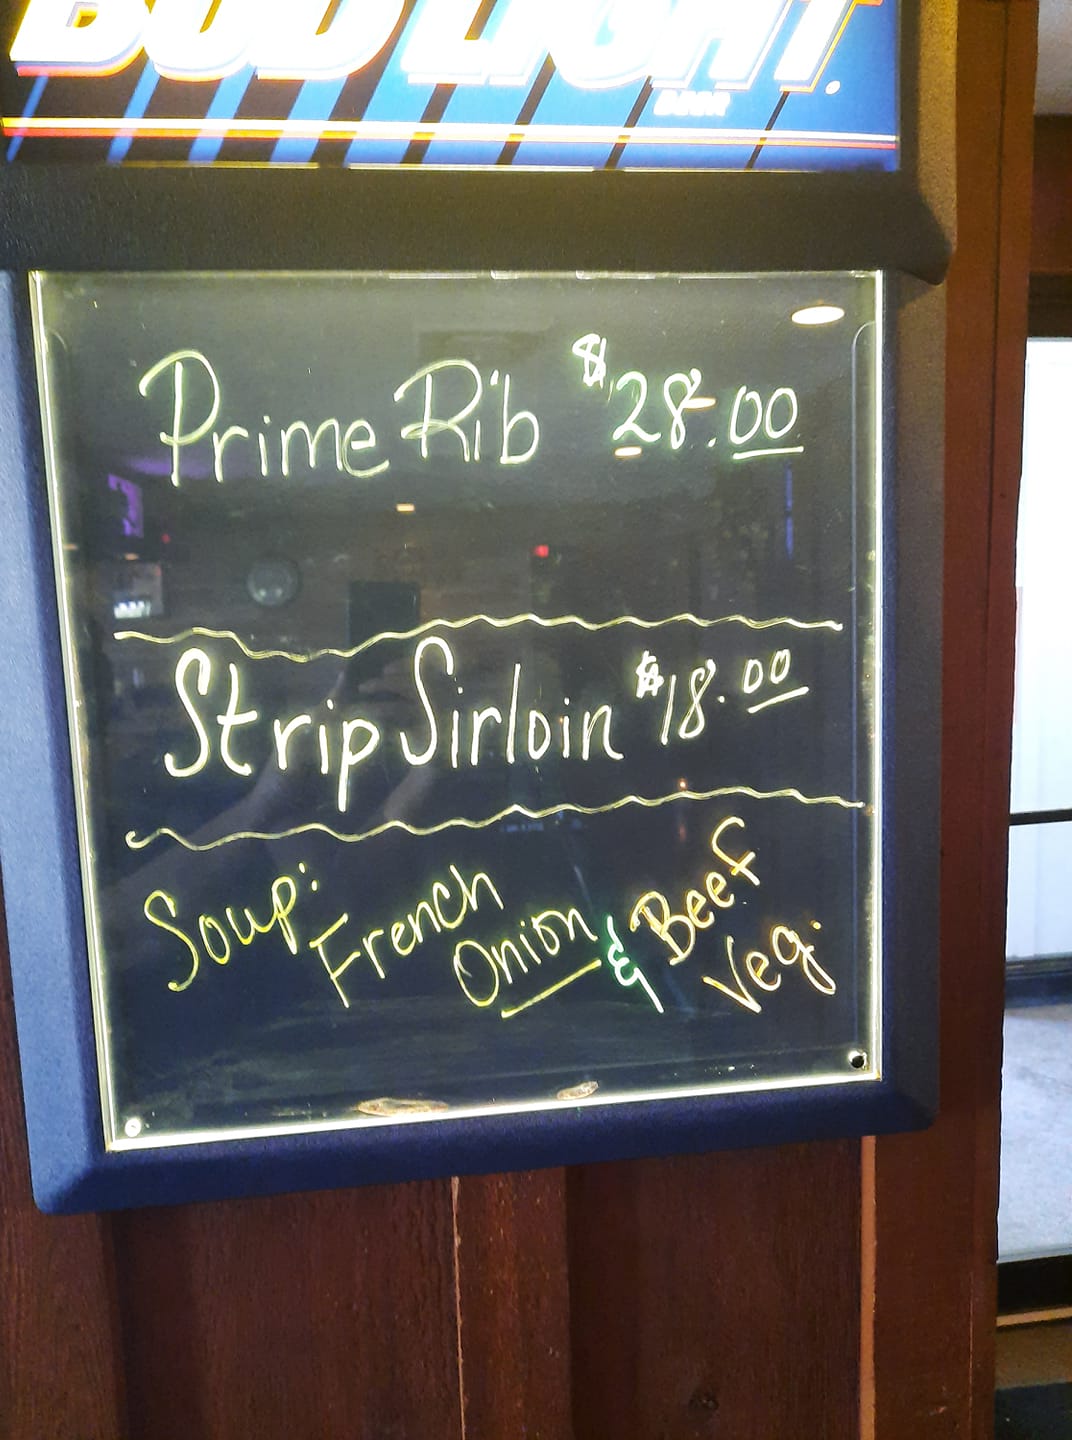 BUD LIGHT
BEER
Prime Rib $28.00
Strip Sirloin $18.00
Soup: French Onion & Beef Veg.